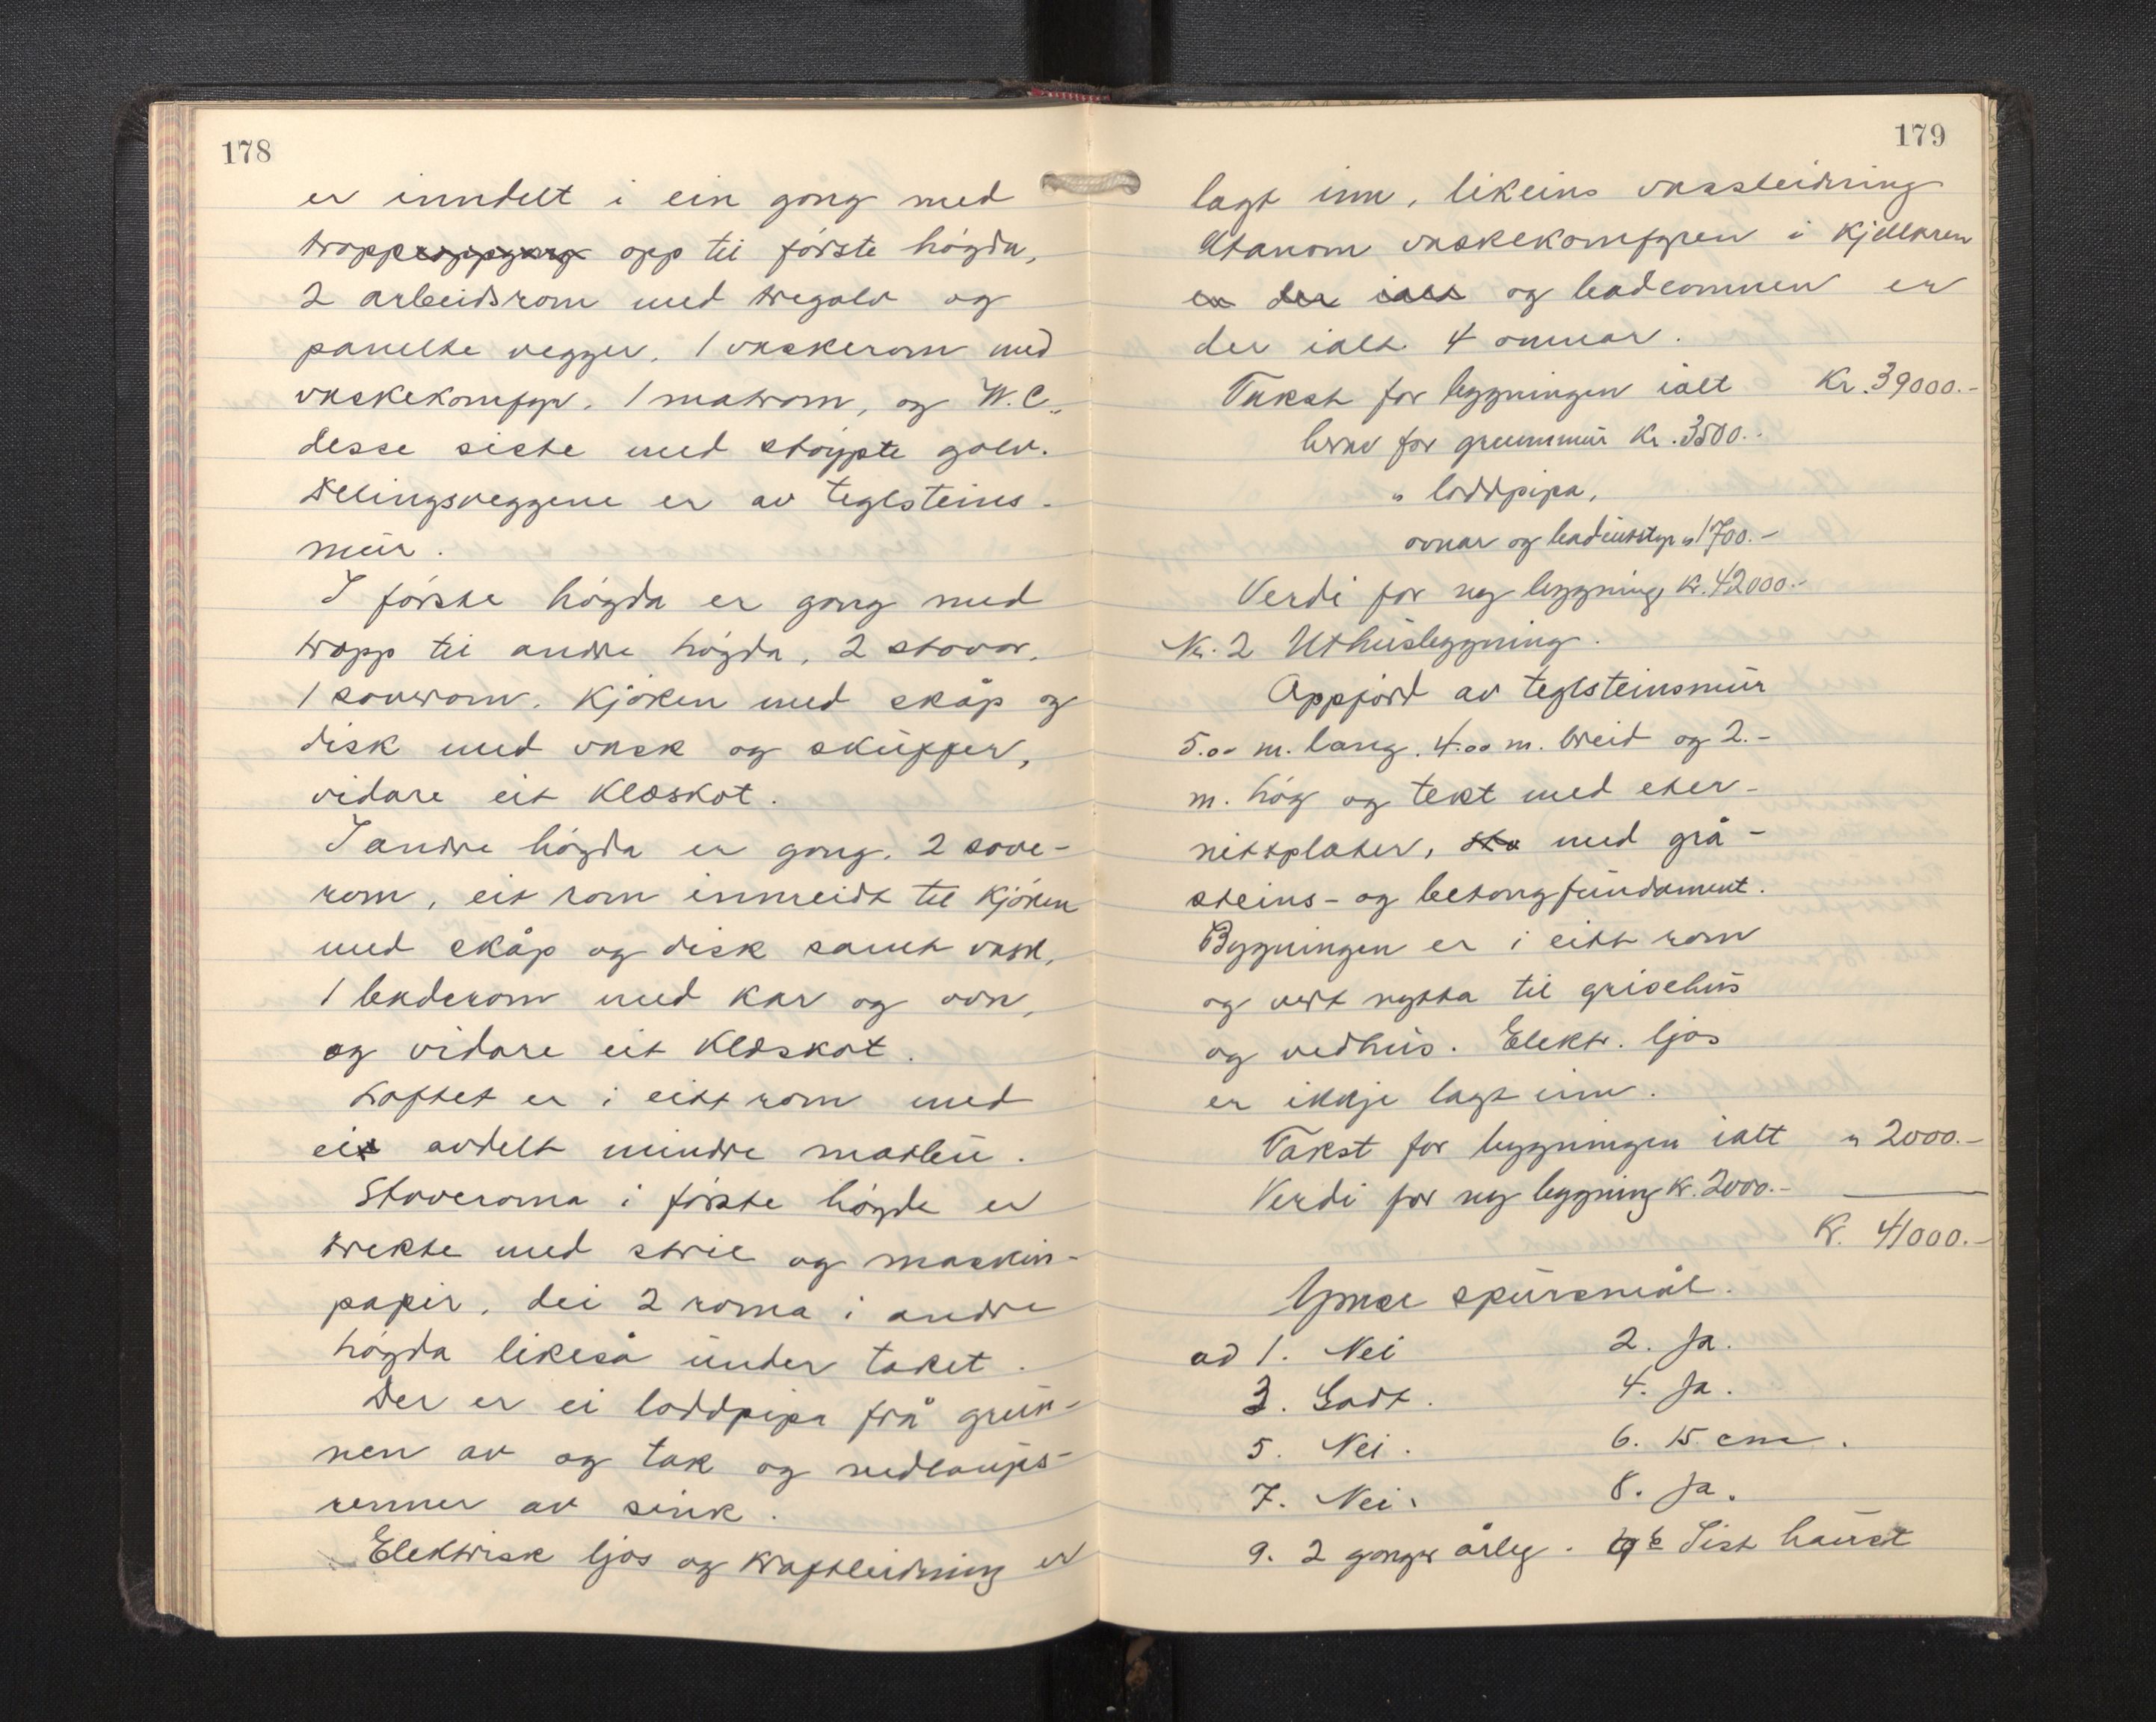 178
er inndelt i ein gong med
trapp opp til förste högda,
2 arbeidsrom med tregolv og
panelte vegger, 1 vaskerom med
vaskekomfyr, 1 matrom, og W.C.,
desse siste med stöypte golv.
Delingsveggene er av teglsteins-
mur.
I förste högda er gong med
trapp til andre högda, 2 stovor,
1 soverom, kjöken med skåp og
disk med vask og skuffer,
vidare eit klæskot.
I andre högda er gong, 2 sove-
rom, eit rom innreidt til kjöken
med skåp og disk samt vask,
1 baderom med kar og ovn,
og vidare eit klæskot.
Loftet er i eitt rom med
eit avdelt mindre matbu.
Stoveroma i förste högde er
trekte med strie og maskin-
papir, dei 2 roma i andre
högda likeså under taket.
Der er ei loddpipa frå grun-
nen av og tak og nedlaups-
renner av sink.
Elektrisk ljos og kraftleidning er
179
lagt inn, likeins vassleidning
Utanom vaskekomfyren i kjellaren
er der ialt og badeomnen er
der ialt 4 omnar.
Takst for bygningen ialt Kr. 39000.-
herav for grunnmur Kr. 3500.-
" loddpipa,
ovnar og badeutstyr " 1700.-
Verdi for ny bygning Kr. 42000.-
Nr. 2 Uthusbygning.
Oppförd av teglsteinsmur
5.00 m. lang, 4.00 m. breid og 2.-
m. hög og tekt med eter-
nittplater, med grå-
steins- og betongfundament.
Bygningen er i eitt rom
og vert nytta til grisehus
og vedhus. Elektr. ljos
er ikkje lagt inn.
Takst for bygningen ialt " 2000.-
Verdi for ny bygning Kr. 2000.-
Kr. 41000.-
Ymse spursmål.
ad 1. Nei 2. Ja.
3. Godt. 4. Ja.
5. Nei. 6. 15 cm.
7. Nei. 8. Ja.
9. 2 gonger årleg. Sist haust